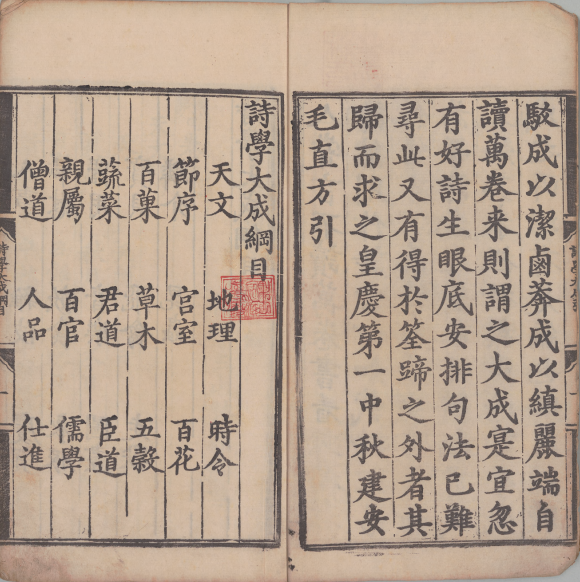 駁成以潔鹵莽成以縝麗端自
讀萬卷来則謂之大成寔宜忽
有好詩生眼底安排句法已難
尋此又有得於筌蹄之外者其
歸而求之皇慶第一中秋建安
毛直方引
詩學大成綱目
天文 地理 時令
節序 宮室 百花
百菓 草木 五糓
蔬菜 君道 臣道
親屬 百官 儒學
僧道 人品 仕進